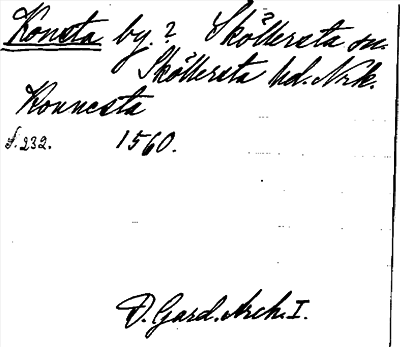 Konsta by? Sköllersta sn.
Sköllersta hd. Nrk.
Konnesta
f. 232. 1560.
D. Gard. Arch. I.